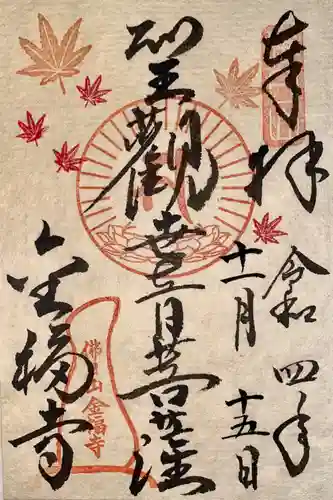 奉拝
令和四年
十一月十五日
聖觀世音菩薩
金福寺
佛日山金福寺